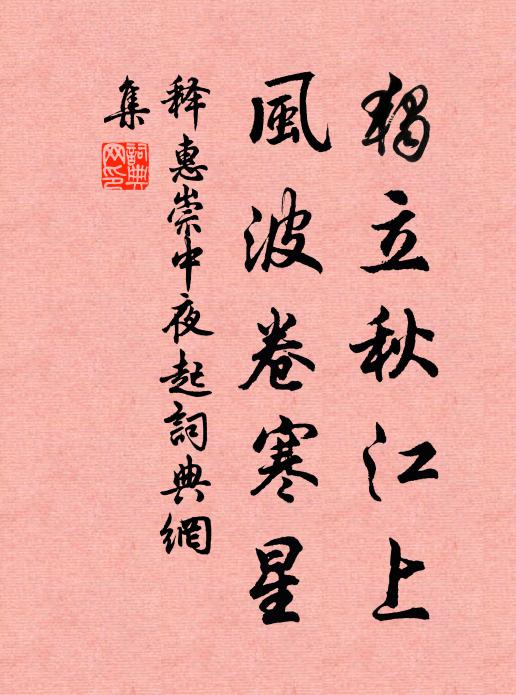 獨立秋江上
風波卷寒星
释惠崇中夜起詞典網
集
詞典
网印